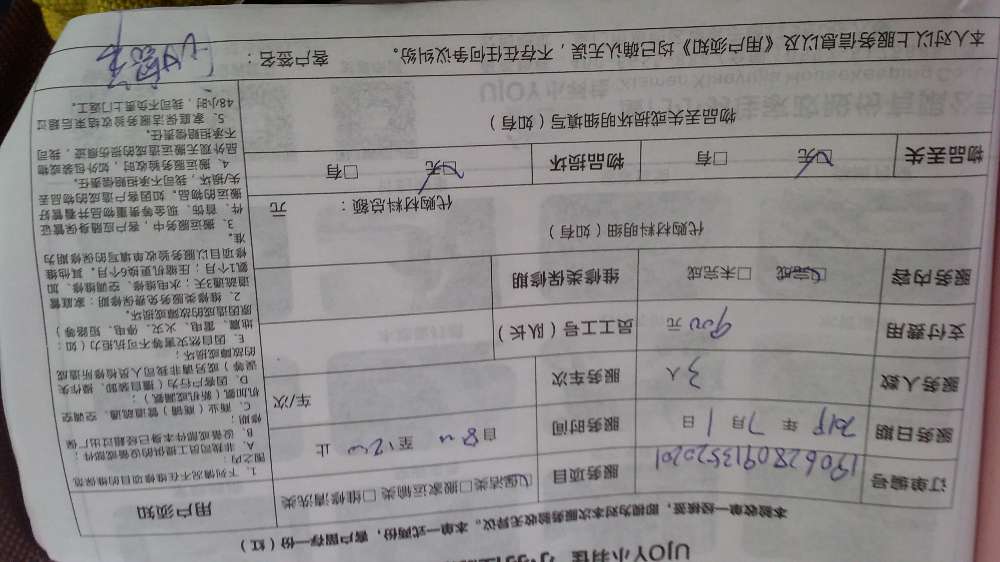 UJOY小羽佳
本验收单一经核签，即视为对本次服务验收无异议。本单一式两份，客户留存一份（红）
订单编号 1906280913520201 服务项目 ☑保洁类 □搬家运输类 □维修清洗类
服务日期 2019 年 7 月 1 日 服务时间 自 8:00 至 12:00 止
服务人数 3 人 服务车次 车/次
支付费用 900 元 员工工号（队长）
服务内容 ☑完成 □未完成 维修类保修期
代购材料明细（如有）
代购材料总额： 元
物品丢失 ☑无 □有 物品损坏 ☑无 □有
物品丢失或损坏明细填写（如有）
用户须知
1. 下列情况不在维修项目的维保范
围之内：
A. 非我司员工提供的设备或部件；
B. 设备或部件本身已经超过出厂保
修期；
C. 商业（商铺）管道疏通、空调空
机加氨（新机或漏氨）；
D. 因客户行为（擅自装卸、操作失
误等）或另请非我司人员检修所造成
的故障或损坏；
E. 因自然灾害等不可抗拒力（如：
地震、雷电、火灾、停电、短路等）
原因造成的故障或损坏。
2. 维修类服务免费保修期：家庭管
道疏通3天；水电维修、空调维修、加
氨1个月；压缩机更换6个月。其他维
修项目以服务验收单填写的保修期为
准。
3. 搬运服务中，客户应随身保管证
件、首饰、现金等贵重物品并看管好
搬运的物品。如因客户造成的物品丢
失/损坏，我司不承担赔偿责任。
4. 搬运服务验收时，如外包装或物
品外观无搬运造成的损伤痕迹，我司
不承担赔偿责任。
5. 家庭保洁服务验收结束后超过
48小时，我司不负责上门返工。
本人对以上服务信息以及《用户须知》均已确认无误，不存在任何争议纠纷。 客户签名：